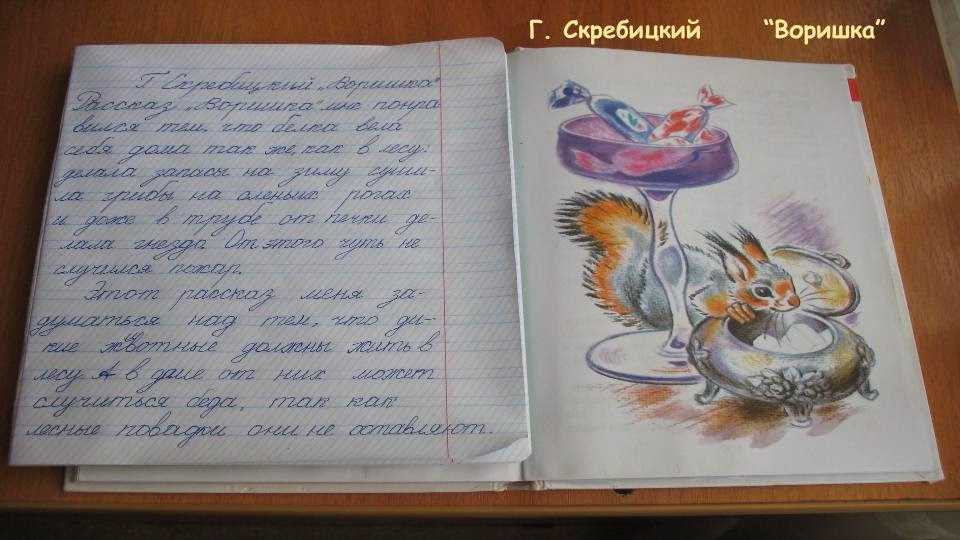 Г. Скребицкий “Воришка”
Г Скребицкий „Воришка"
Рассказ „Воришка" мне понра
вился тем, что белка вела
себя дома так же, как в лесу:
делала запасы на зиму суши-
ла грибы на оленьих рогах
и даже в трубе от печки де-
лала гнездо От этого чуть не
случился пожар.
Этот рассказ меня за-
думаться над тем, что ди-
кие животные должны жить в
лесу. А в даме от них может
случиться беда, так как
лесные повадки они не оставляют.